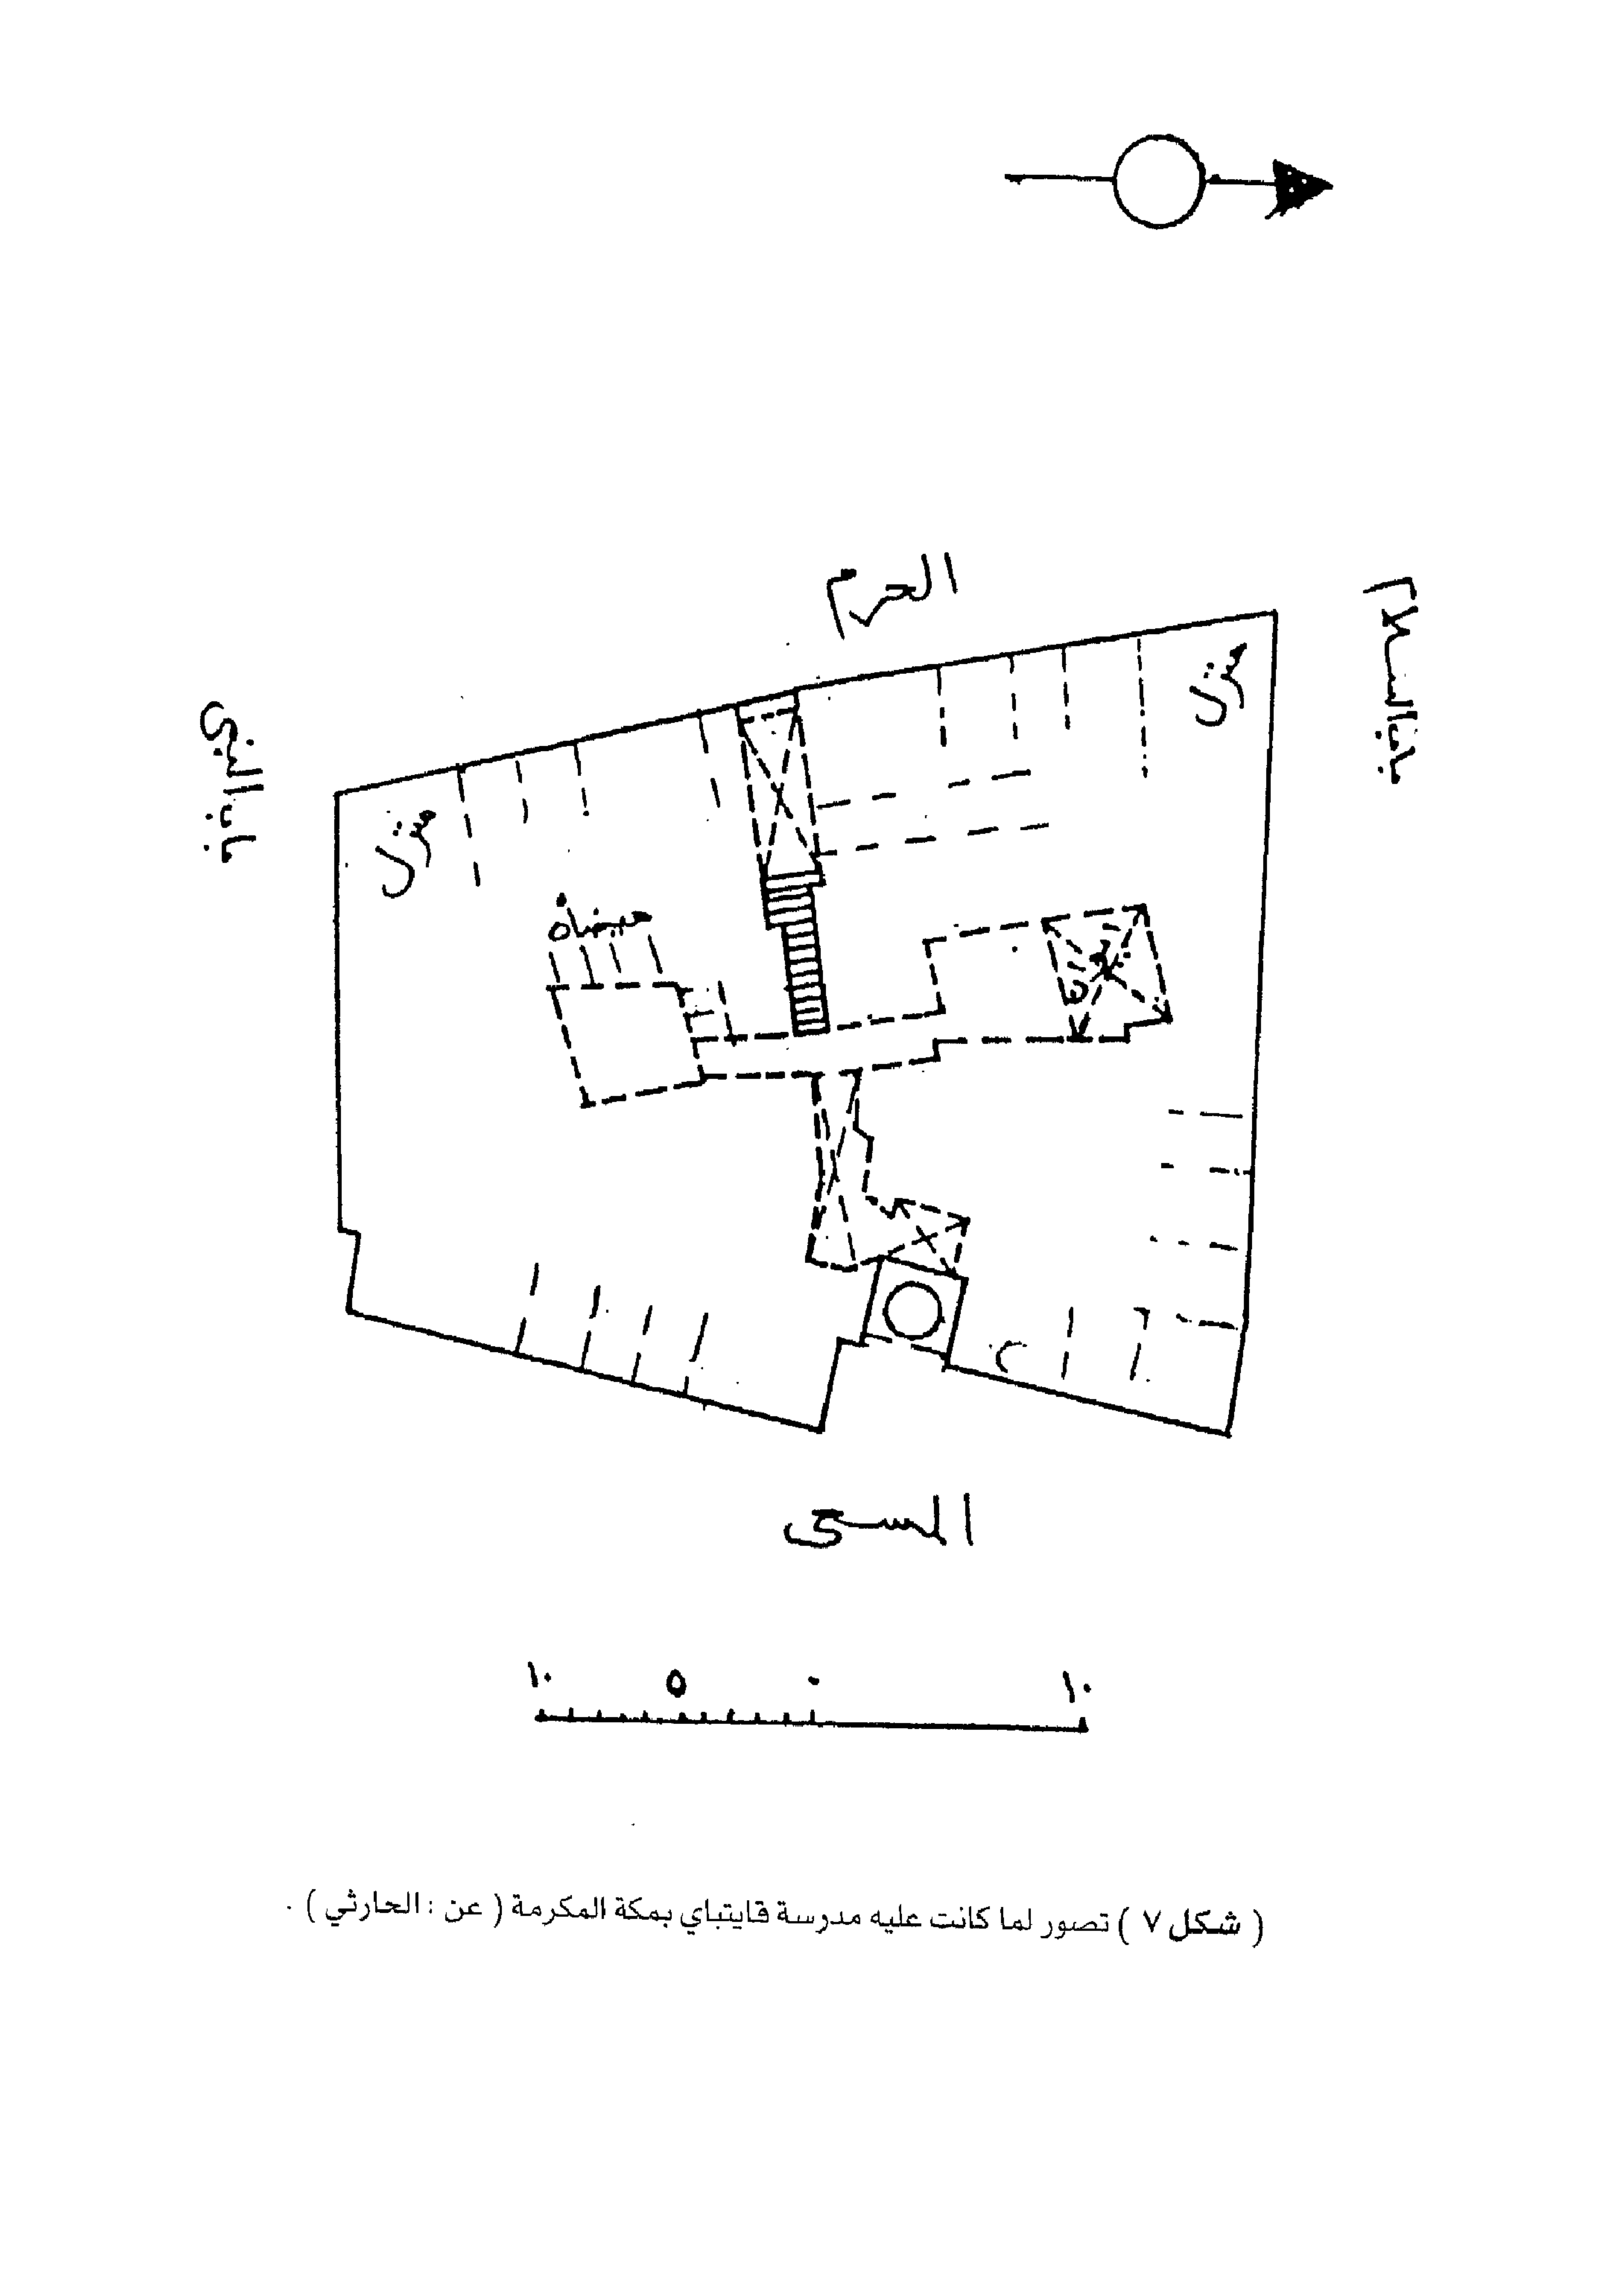 الحرم
باب السلام
باب النبي
منزل
منزل
ميضأة
المسعى
١٠ ٥ ٠ ١٠
( شكل ٧ ) تصور لما كانت عليه مدرسة قايتباي بمكة المكرمة ( عن : الحارثي ) .